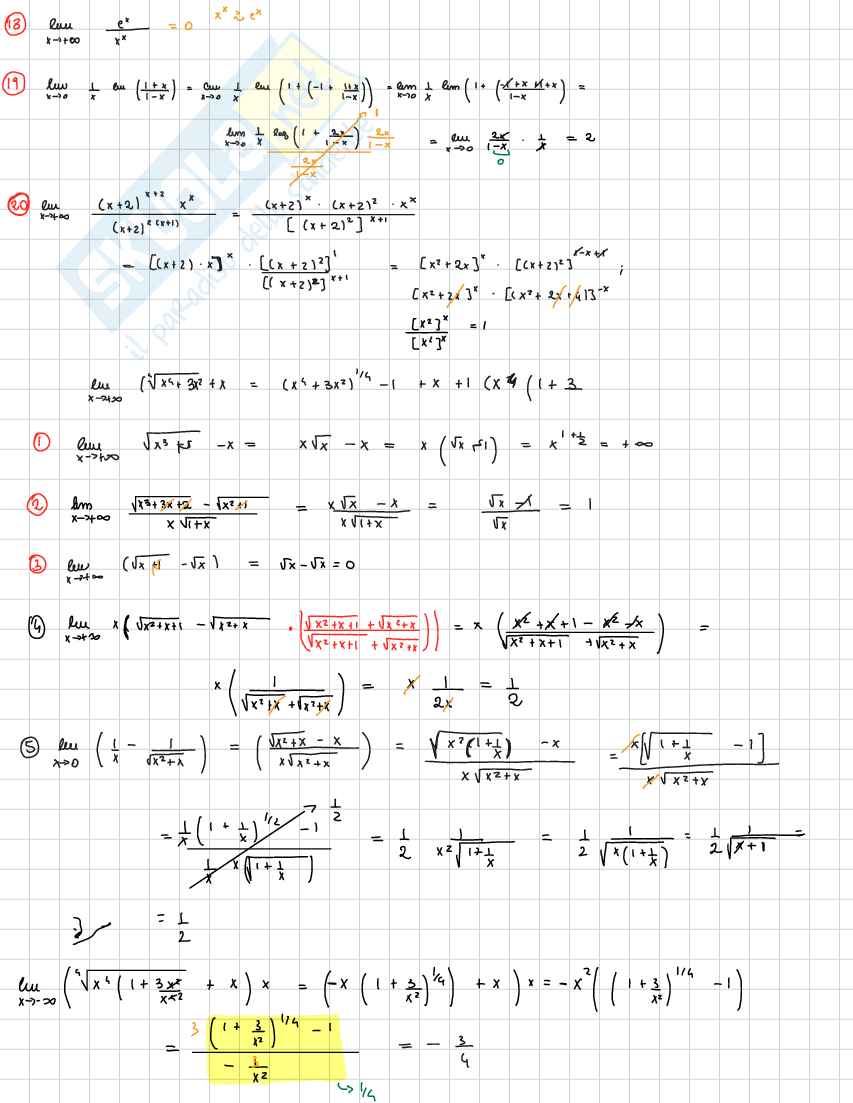 18) lim x→+∞ e^x / x^x = 0 x^x ≥ e^x
19) lim x→0 1/x ln ((1+x)/(1-x)) = lim x→0 1/x ln (1 + (-1 + (1+x)/(1-x))) = lim x→0 1/x ln (1 + (-1+x+1+x)/(1-x)) =
lim x→0 1/x log (1 + 2x/(1-x)) / (2x/(1-x)) → 1 · 2x/(1-x) = lim x→0 2x/(1-x) · 1/x = 2
0
20) lim x→+∞ (x+2)^(x+2) x^x / (x+2)^(2(x+1)) = (x+2)^x · (x+2)^2 · x^x / [(x+2)^2]^(x+1)
= [(x+2) · x]^x · [(x+2)^2]^1 / [(x+2)^2]^(x+1) = [x^2+2x]^x · [(x+2)^2]^(1-x+1) ;
[x^2+2x]^x · [(x^2+2x+4)]^(-x)
[x^2]^x / [x^2]^x = 1
lim x→+∞ (⁴√(x^4+3x^2) + x = (x^4+3x^2)^(1/4) -1 + x +1 (x^4 (1 + 3
1) lim x→+∞ √(x^3+5) - x = x√x - x = x (√x - 1) = x^(1+1/2) = +∞
2) lim x→+∞ (√(x^3+3x+2) - √(x^2+1)) / (x√(1+x)) = (x√x - x) / (x√(1+x)) = (√x - 1) / √x = 1
3) lim x→+∞ (√(x+1) - √x) = √x - √x = 0
4) lim x→+∞ x (√(x^2+x+1) - √(x^2+x) · ((√(x^2+x+1) + √(x^2+x)) / (√(x^2+x+1) + √(x^2+x)))) = x ((x^2+x+1-x^2-x) / (√(x^2+x+1) + √(x^2+x))) =
x (1 / (√(x^2+x) + √(x^2+x))) = x 1/(2x) = 1/2
5) lim x→0 (1/x - 1/√(x^2+x)) = ((√(x^2+x) - x) / (x√(x^2+x))) = (√(x^2(1+1/x)) - x) / (x√(x^2+x)) = x[√(1+1/x) - 1] / (x√(x^2+x))
= 1/x (1+1/x)^(1/2) - 1 / (1/x · x(√(1+1/x))) → 1/2 = 1/2 1/(x^2√(1+1/x)) = 1/2 1/√(x(1+1/x)) = 1/2 1/√(x+1) =
= 1/2
lim x→-∞ (⁴√(x^4 (1 + 3x^2/x^4)) + x) x = (-x (1 + 3/x^2)^(1/4)) + x) x = -x^2 ((1 + 3/x^2)^(1/4) - 1)
= 3 (1 + 3/x^2)^(1/4) - 1 / (- 3/x^2) = - 3/4
→ 1/4
SKUOLA.net
il paradiso dello studente